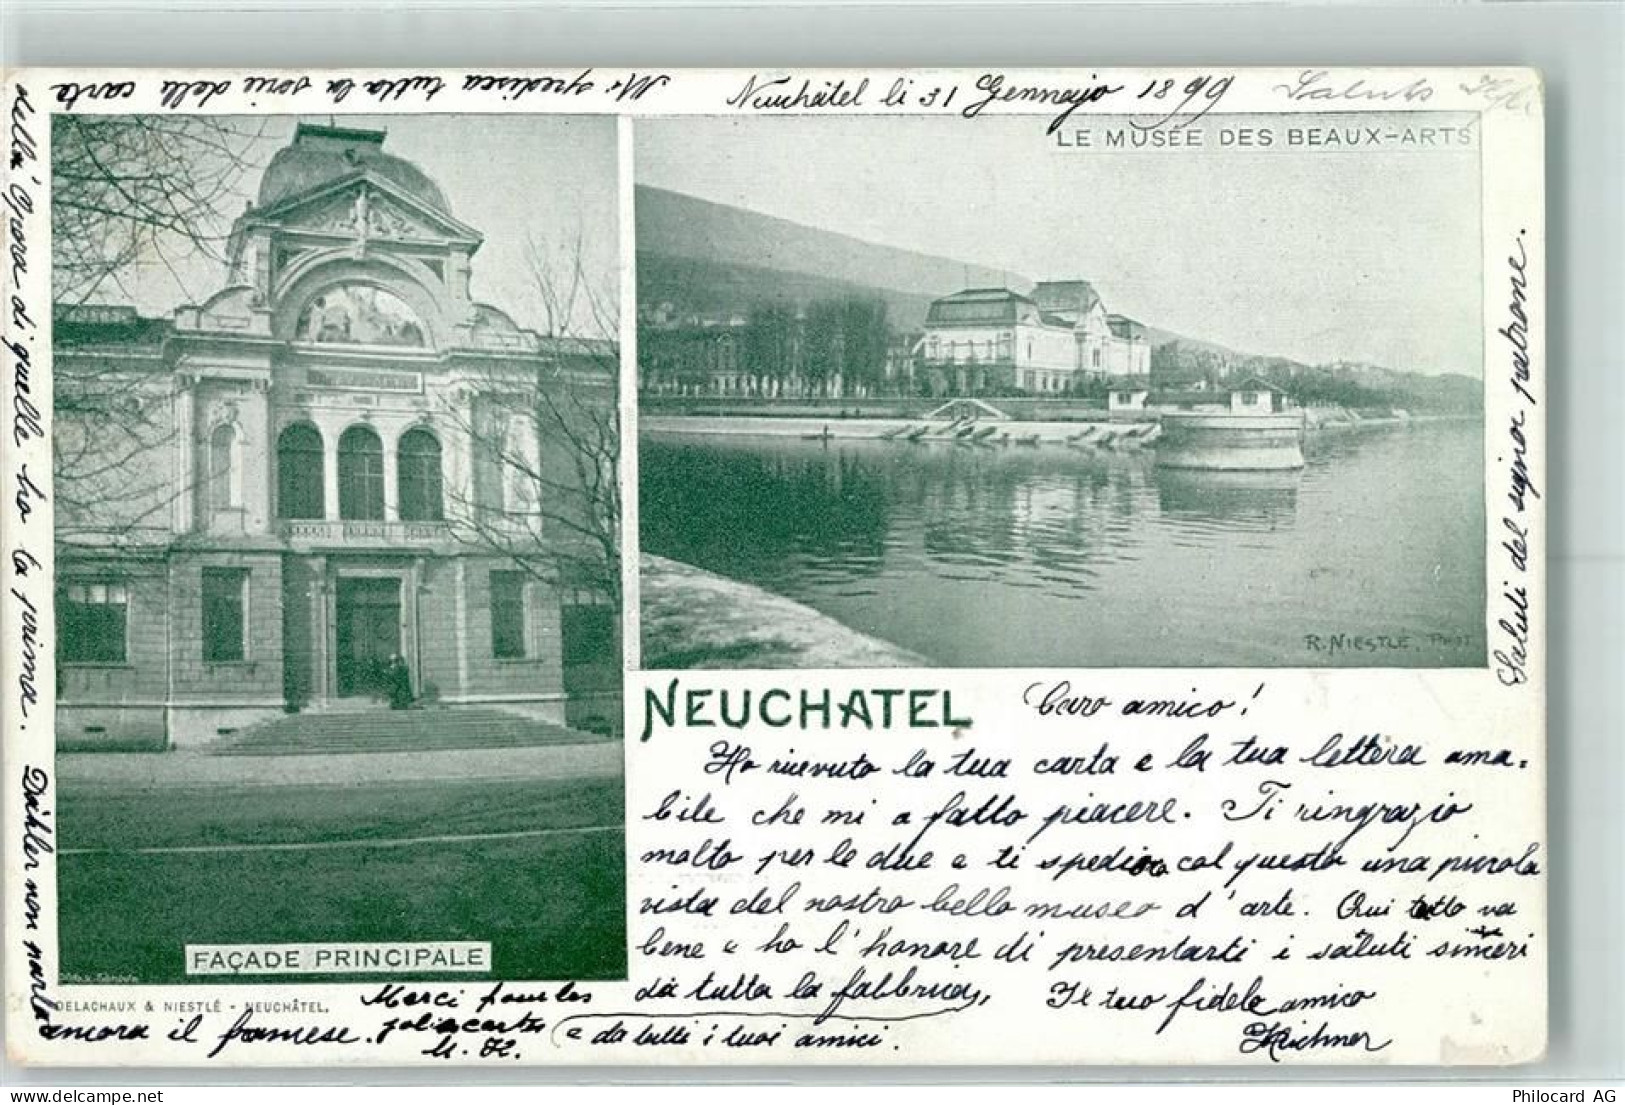 Neuchâtel li 31 Gennajo 1899
Saluts
Mi spedisca tutta la serie delle carte
della' Opera di quelle ho la prima.
Dähler non parla
ancora il francese.
LE MUSÉE DES BEAUX-ARTS
R. NIESTLÉ, PHOT
Saluti del signor patrone.
NEUCHATEL
Caro amico!
Ho ricevuto la tua carta e la tua lettera ama-
bile che mi a fatto piacere. Ti ringrazio
molto per le due e ti spedisco col questo una piccola
vista del nostro bello museo d'arte. Qui tutto va
bene e ho l'honore di presentarti i saluti sinceri
da tutta la fabbrica,
e da tutti i tuoi amici.
Il tuo fidele amico
Kirchner
FAÇADE PRINCIPALE
DELACHAUX & NIESTLÉ - NEUCHÂTEL.
Merci pour les
jolies cartes
M. K.
Philocard AG